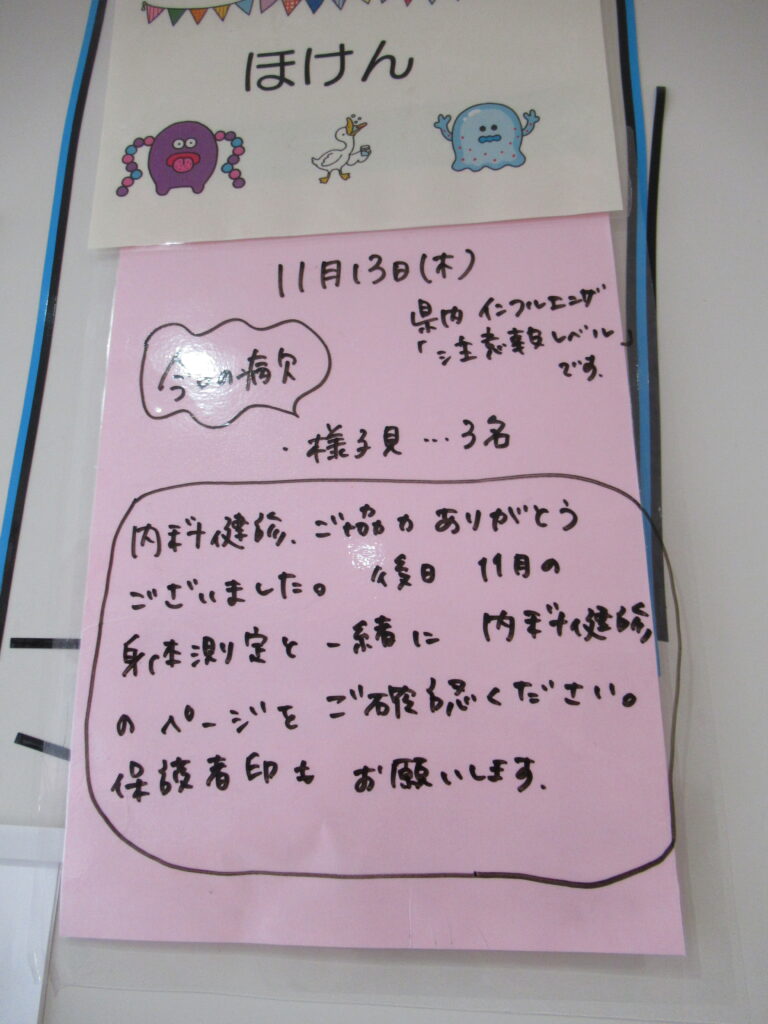 ほけん
11月13日(木)
県内 インフルエンザ
「注意報レベル」
です.
今日の病欠
・様子見…3名
内科健診、ご協力ありがとう
ございました。後日 11月の
身体測定と一緒に 内科健診
のページをご確認ください。
保護者印も お願いします.